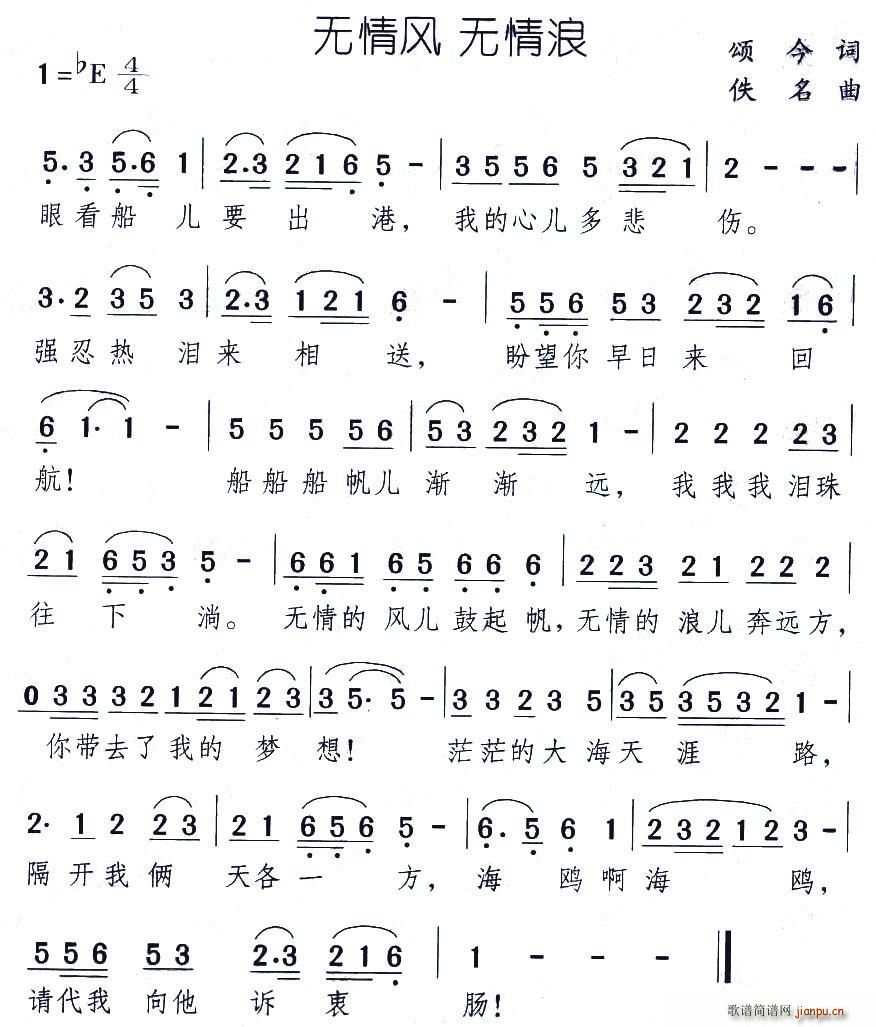 无情风 无情浪
1=♭E 4/4
颂 今 词
佚 名 曲
5. 3 5.6 1 | 2.3 216 5 - | 35 56 5 321 | 2 - - - |
眼看船 儿要 出 港, 我的心儿多悲 伤。
3. 2 35 3 | 2.3 121 6 - | 556 53 232 16 |
强忍热 泪来 相 送, 盼望你 早日 来 回
6 1. 1 - | 5 5 5 56 | 53 532 1 - | 2 2 2 23 |
航! 船船船帆儿 渐 渐 远, 我我我泪珠
21 653 5 - | 661 65 66 6 | 223 21 22 2 |
往 下 淌。 无情的 风儿鼓起帆, 无情的 浪儿奔远方,
033 32 121 23 | 3 5. 5 - | 33 23 5 | 35 3532 1 - |
你带去了我的 梦 想! 茫茫的大海天 涯 路,
2. 1 2 23 | 21 656 5 - | 6. 5 6 1 | 232 12 3 - |
隔开我 俩 天各 一 方, 海 鸥啊海 鸥,
556 53 2.3 216 | 1 - - ‖
请代我 向他 诉 衷 肠!
歌谱简谱网
jianpu.cn